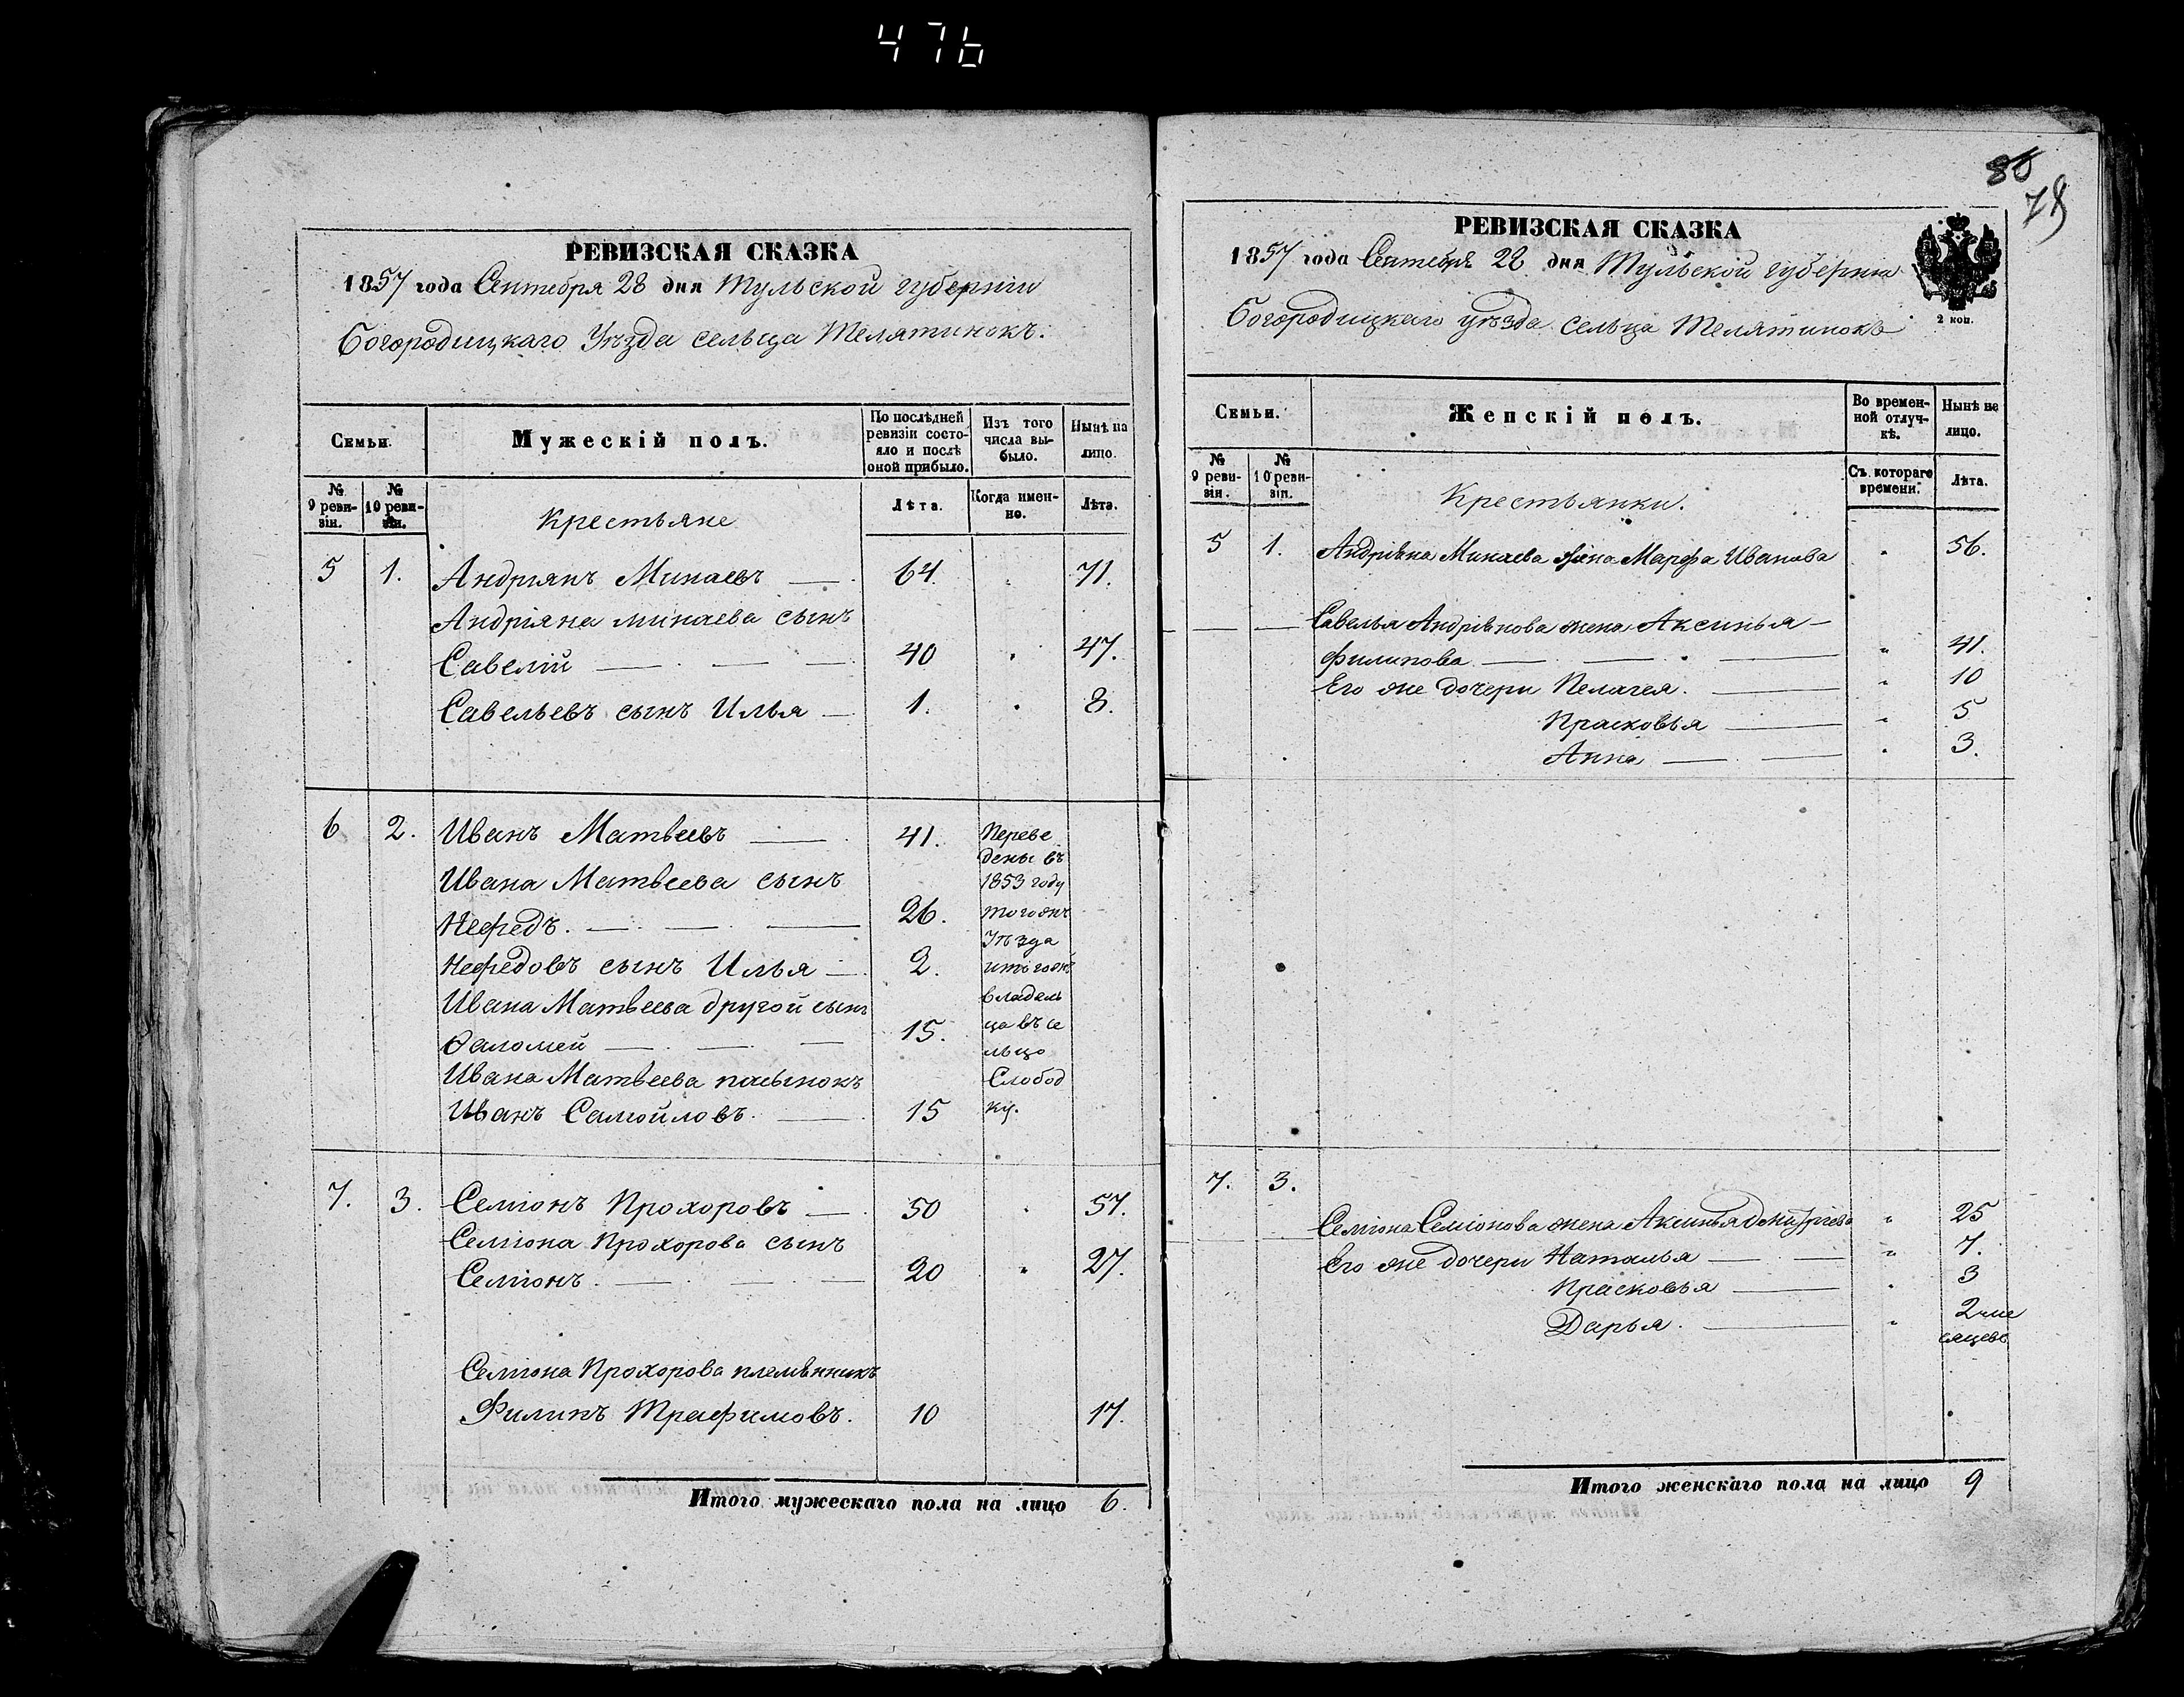 476
РЕВИЗСКАЯ СКАЗКА
1857 года Сентября 28 дня Тульской губерніи
Богородицкаго Уѣзда сельца Телятинокъ.
Семьи.
Мужескій полъ.
По послѣдней ревизіи состояло и послѣ оной прибыло.
Изъ того числа выбыло.
Нынѣ на лицо.
№ 9 ревизіи.
№ 10 ревизіи.
Крестьяне
Лѣта.
Когда именно.
Лѣта.
5 1. Андріянъ Минаевъ — 64 71.
Андріяна Минаева сынъ
Савелій — — — 40 47.
Савельевъ сынъ Илья — 1. 8.
6 2. Иванъ Матвеевъ — 41. Переве
дены въ
Ивана Матвеева сынъ 1853 году
Нефедъ. — — — 26. тогожъ
Уѣзда
Нефедовъ сынъ Илья — 2. итогожъ
Ивана Матвеева другой сынъ владель
Ѳаломей — — — 15. ца въ се
льцо
Ивана Матвеева пасынокъ Слобод
Иванъ Самойловъ. — 15 ку.
7. 3. Семіонъ Прохоровъ — 50 57.
Семіона Прохорова сынъ
Семіонъ. — — — 20 27.
Семіона Прохорова племянникъ
Филипъ Трафимовъ. 10 17.
Итого мужескаго пола на лицо 6.
80
78
РЕВИЗСКАЯ СКАЗКА
1857 года Сентября 28 дня Тульской губерніи
Богородицкаго уѣзда сельца Телятинокъ
2 коп.
Семьи.
Женскій полъ.
Во временной отлучкѣ.
Нынѣ на лицо.
№ 9 ревизіи.
№ 10 ревизіи.
Крестьянки.
Съ котораго времени.
Лѣта.
5 1. Андріяна Минаева жена Марфа Иванова 56.
Савелья Андріянова жена Аксинья —
Филипова — — — 41.
Его же дочери Пелагея. — 10
Прасковья — 5
Анна — — 3.
7. 3.
Семіона Семіонова жена Аксинья Дмитріева 25
Его же дочери Наталья — — 7.
Прасковья — 3
Дарья. — 2 ме
сяцевъ
Итого женскаго пола на лицо 9